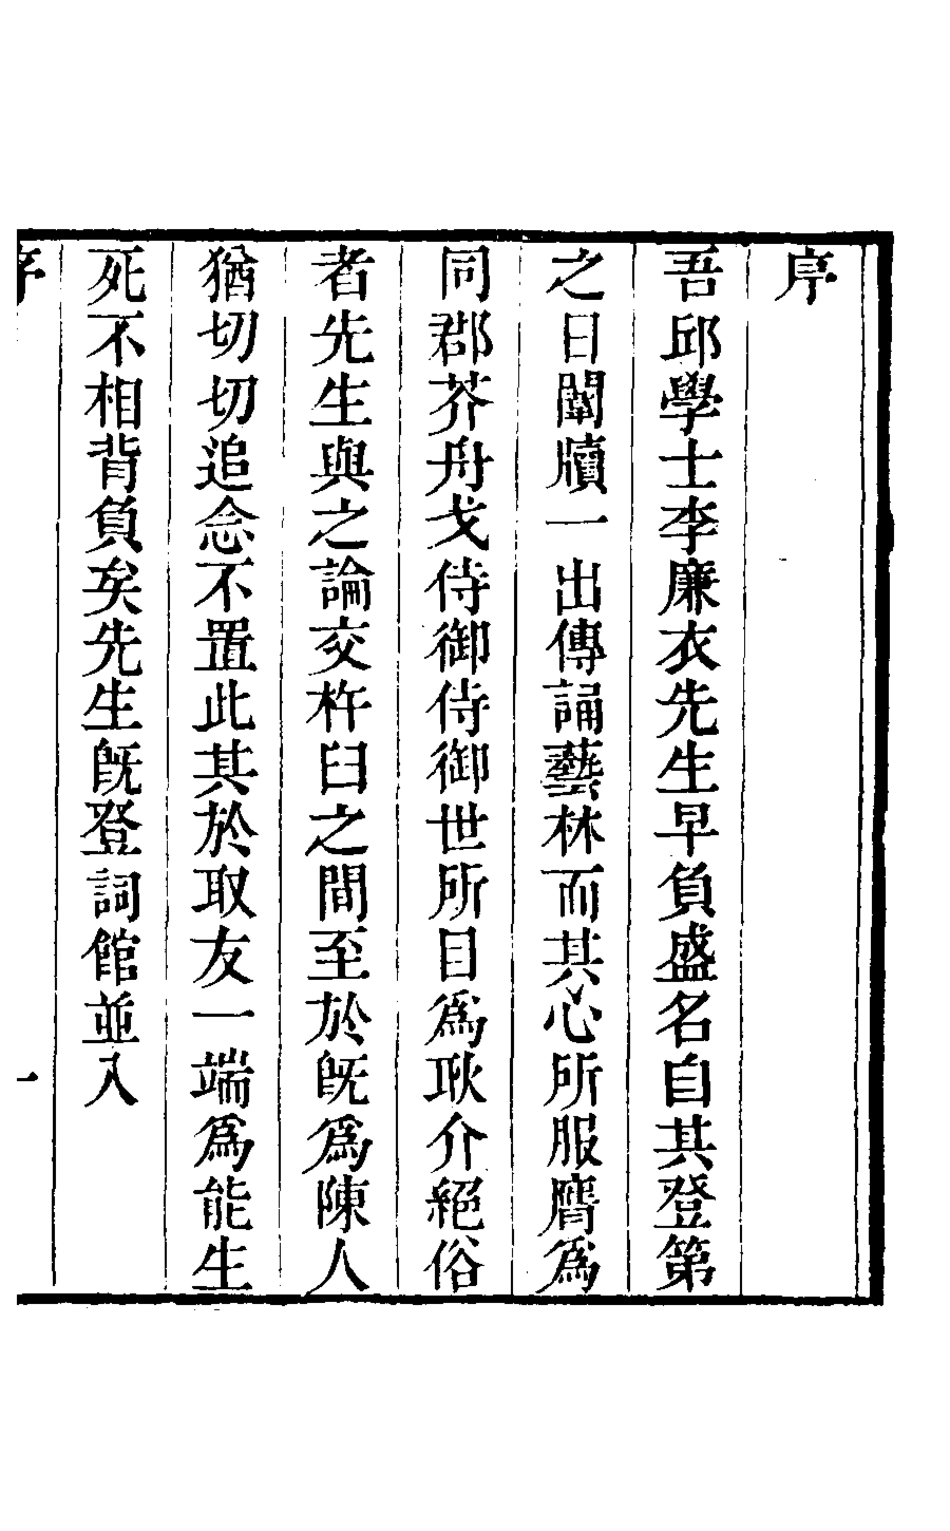 序
吾邱學士李廉衣先生早負盛名自其登第
之日闈牘一出傳誦藝林而其心所服膺爲
同郡芥舟戈侍御侍御世所目爲耿介絕俗
者先生與之論交杵臼之間至於旣爲陳人
猶切切追念不置此其於取友一端爲能生
死不相背負矣先生旣登詞館並入
序
一